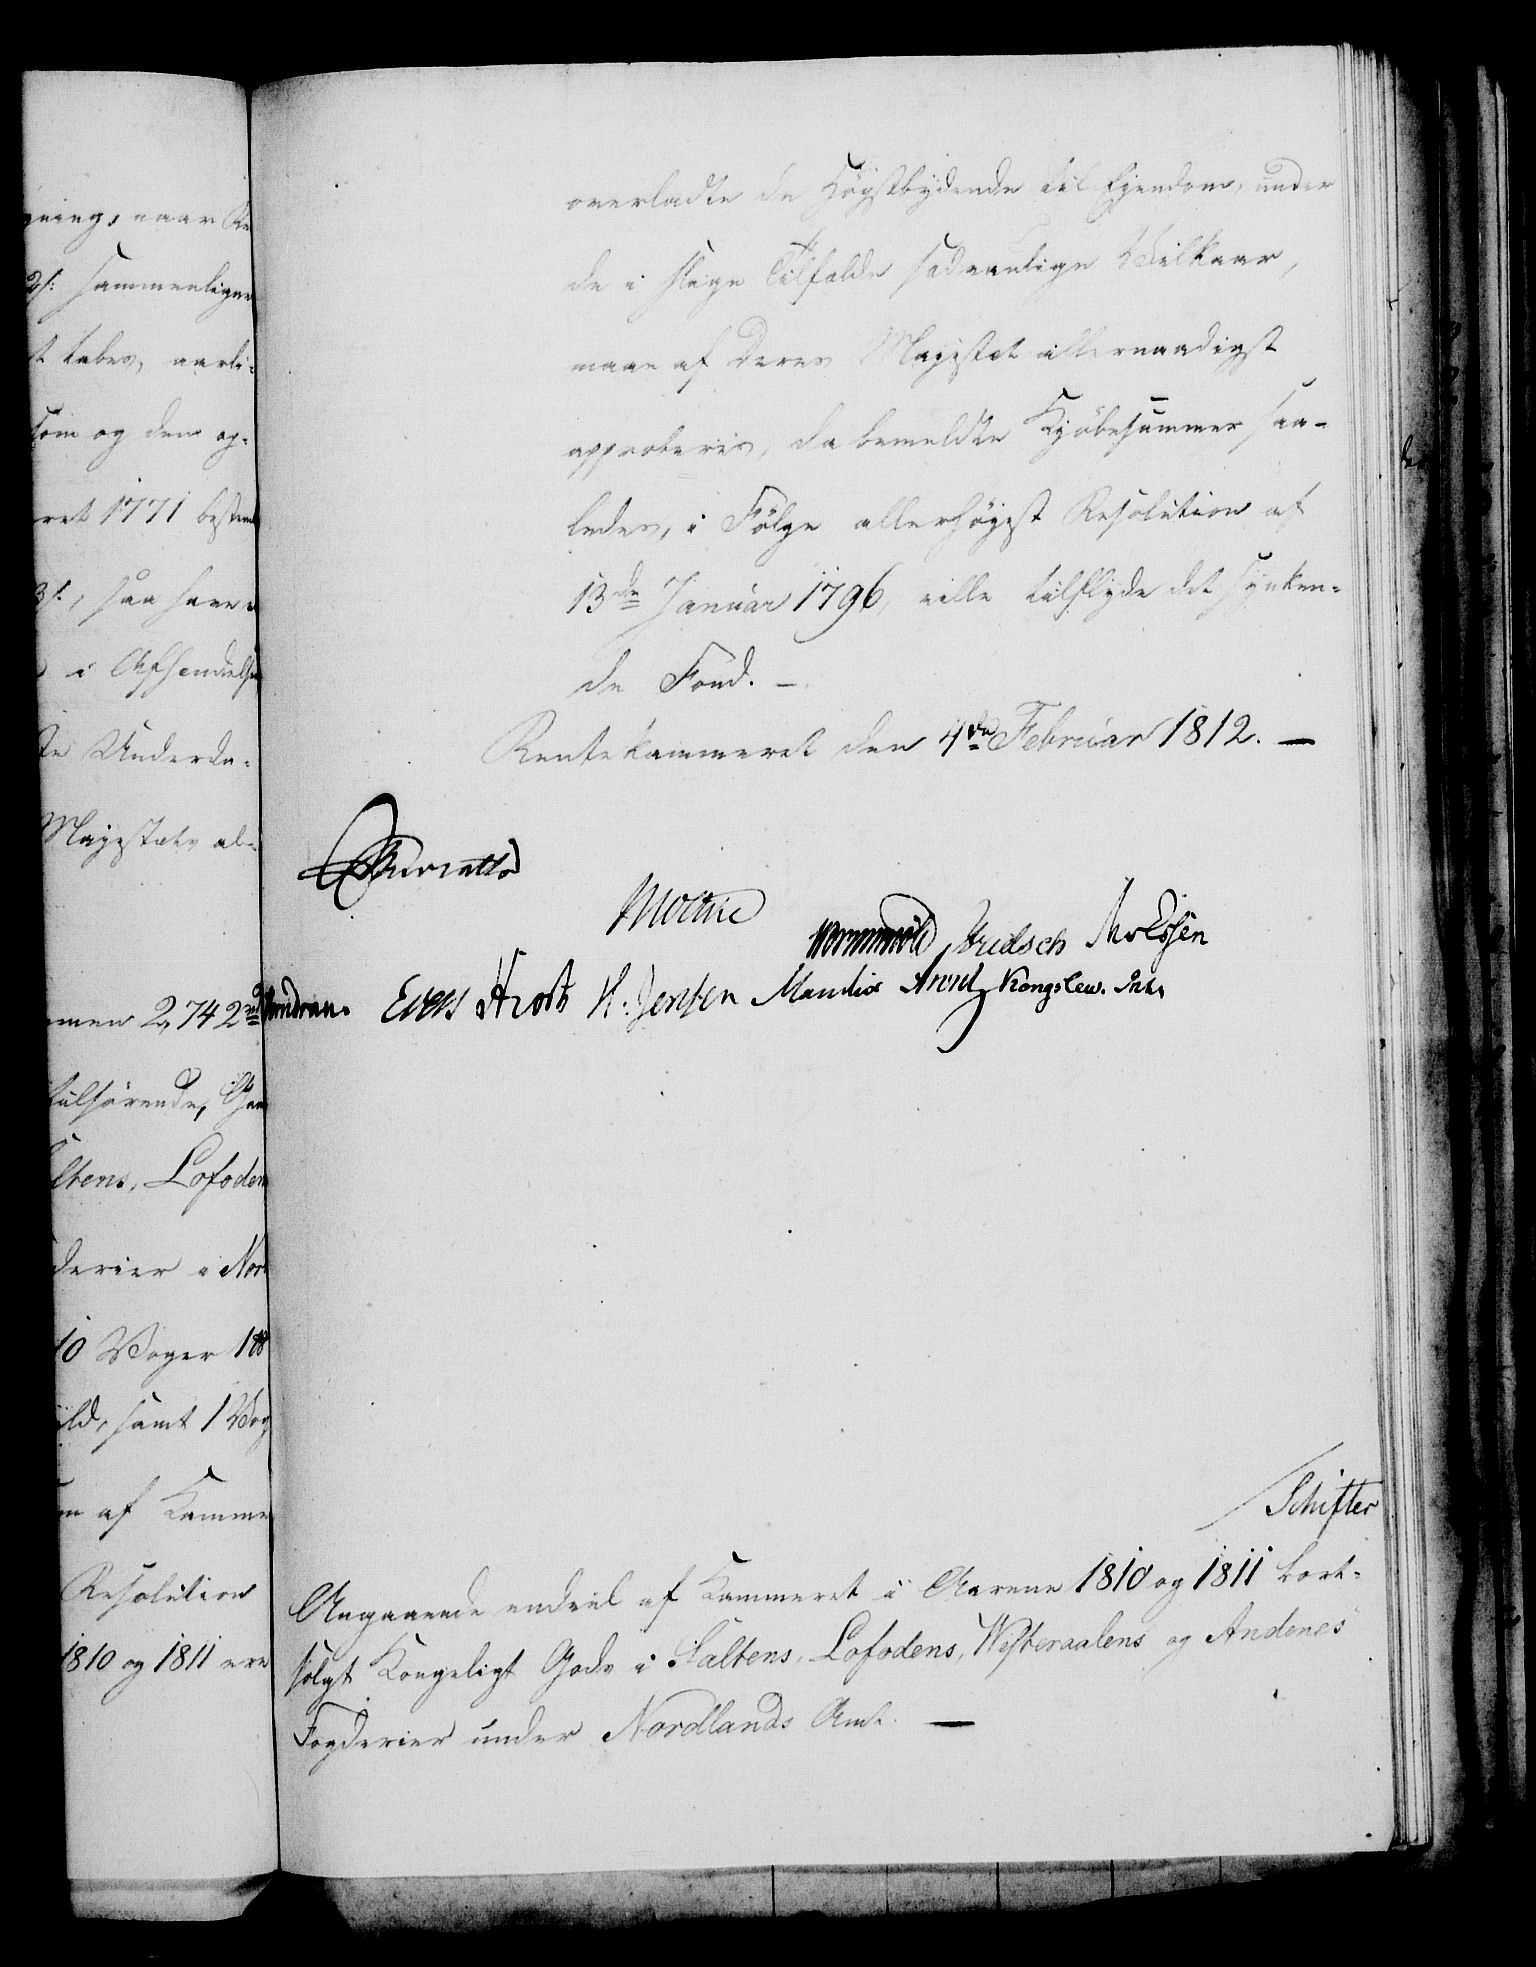 gning, naar Re
2/: sammenligne
t tabes, aarli-
som og den op-
ret 1771 bestem
3/:, saa have
i Afhændelse
te Underda-
Majestæts al-
men 2,742
tilhørende,
ltens, Lofoden
derier i Nor
10 Woger 1
ild, samt 1 Wog
m af Kamme
Resolution
1810 og 1811 ere
overladte de Høystbydende til Ejendom, under
de i slige Tilfælde sædvanlige Vilkaar,
maae af Deres Majestæt allernaadigst
approberes, da bemeldte Kjøbesummer saa-
ledes, i Følge allerhøyest Resolution af
13de Januar 1796, ville tilflyde det synken-
de Fond. –
Rentekammeret den 4de Februar 1812. —
Moltke
Wormskiold
Evers H. Jensen Mandix Kongslew.
Schifter
Angaaende endeel af Kammeret i Aarene 1810 og 1811 bort-
solgt Kongeligt Gods i Saltens, Lofodens, Westeraalens og Andenes
Fogderier under Nordlands Amt. —